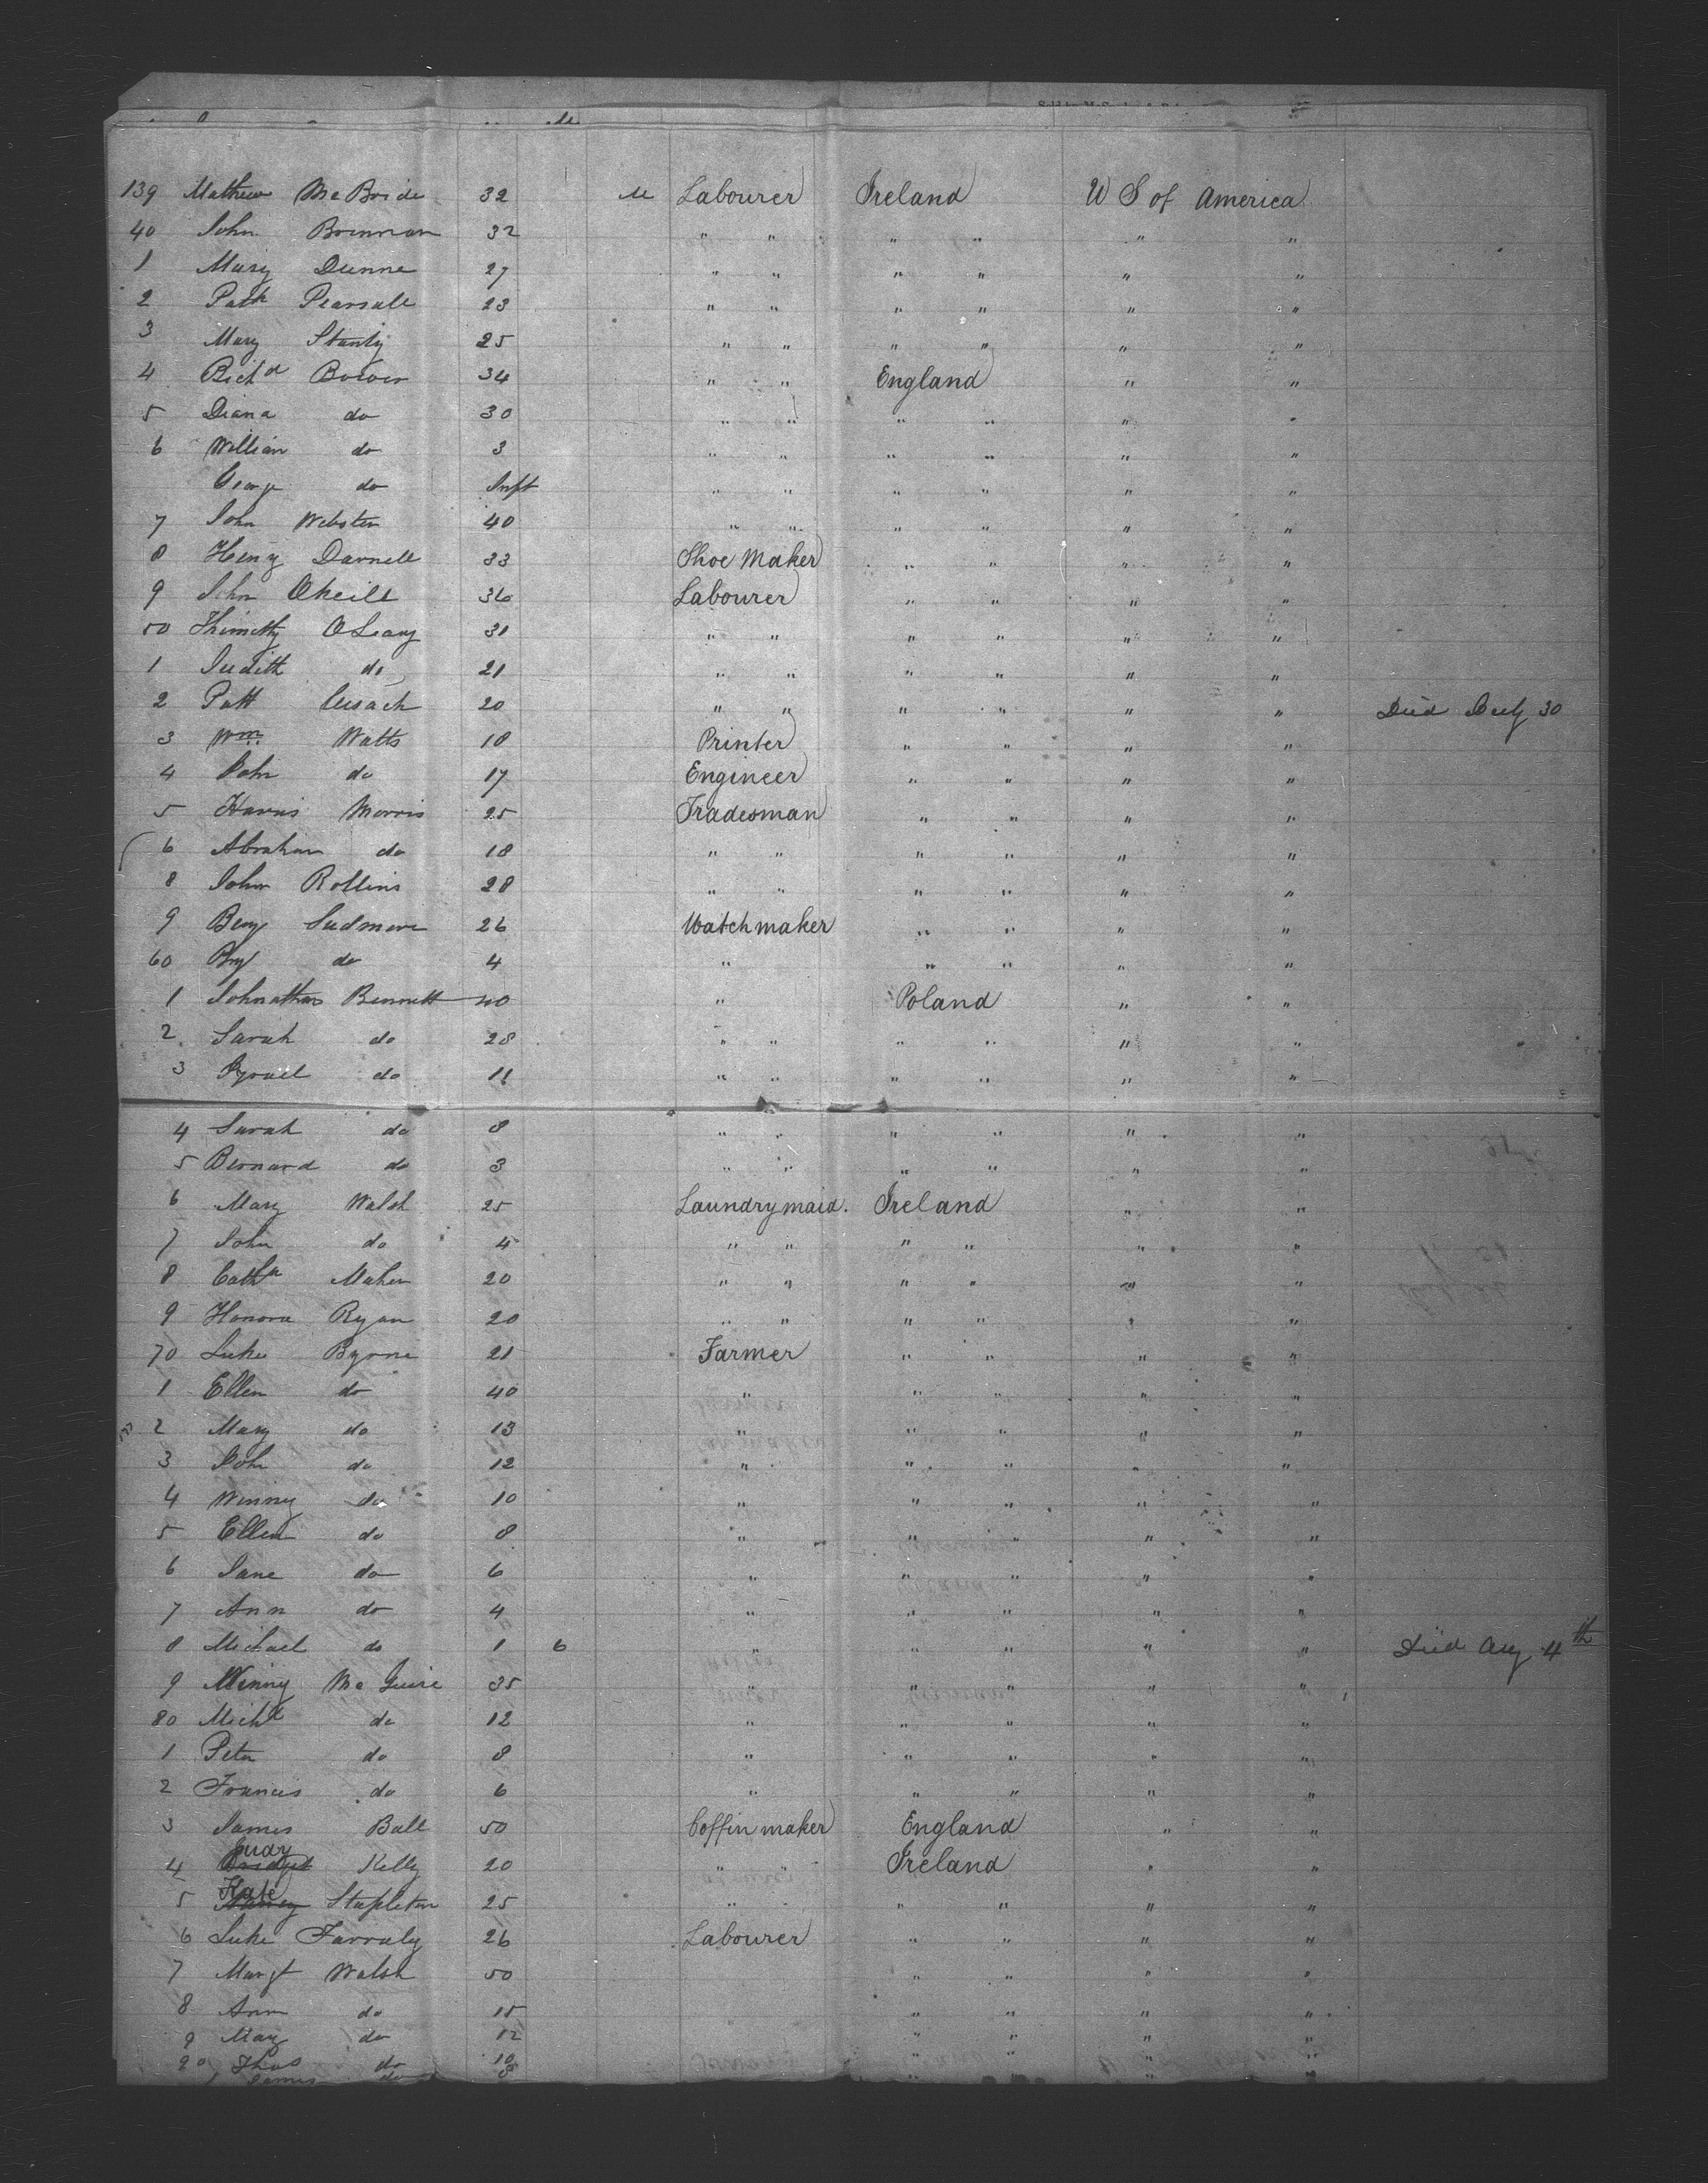 139 Mathew McBride 32 M Labourer Ireland U S of America
40 John Brennan 32 " " " " " "
1 Mary Dunne 27 " " " " " "
2 Patk Pearsall 23 " " " " " "
3 Mary Stanly 25 " " " " " "
4 Richd 34 " " England " "
5 Diana do 30 " " " " " "
6 William do 3 " " " " " "
George do Inft " " " " " "
7 John Webster 40 " " " " " "
8 Henry Darnell 33 Shoe Maker " " " "
9 John Oneill 36 Labourer " " " "
50 Thimothy OLeary 31 " " " " " "
1 Judith do 21 " " " " " "
2 Patt Cusack 20 " " " " " " Died July 30
3 Wm Watts 18 Printer " " " "
4 John do 17 Engineer " " " "
5 Harris Morris 25 Tradesman " " " "
6 Abraham do 18 " " " " " "
8 John Rollins 28 " " " " " "
9 Benj Sudmore 26 Watchmaker " " " "
60 do 4 " " " " "
1 Johnathan Bennett 40 " Poland " "
2 Sarah do 28 " " " " " "
3 do 11 " " " " " "
4 Sarah do 8 " " " " " "
5 Bernard do 3 " " " " " "
6 Mary Walsh 25 Laundrymaid. Ireland " "
7 John do 4 " " " " " "
8 Cathn Maher 20 " " " " " "
9 Honora Ryan 20 " " " " " "
70 Luke Byrne 21 Farmer " " " "
1 Ellen do 40 " " " " "
2 Mary do 13 " " " " "
3 John do 12 " " " " "
4 Winny do 10 " " " " "
5 Ellen do 8 " " " " "
6 Jane do 6 " " " " "
7 Ann do 4 " " " " "
8 Michael do 1 6 " " " " " Died Aug 4th
9 Winny McGuire 35 " " " " "
80 Michl do 12 " " " " "
1 Peter do 8 " " " " "
2 Francis do 6 " " " " "
3 James Ball 50 Coffin maker England " "
4 Judy Bridget Kelly 20 " " Ireland " "
5 Kate Stapleton 25 " " " " " "
6 Luke Farraly 26 Labourer " " " "
7 Margt Walsh 50 " " " "
8 Ann do 15 " " " "
9 Mary do 12 " " " "
90 Thos do 10 " " " "
1 James do 8 " "